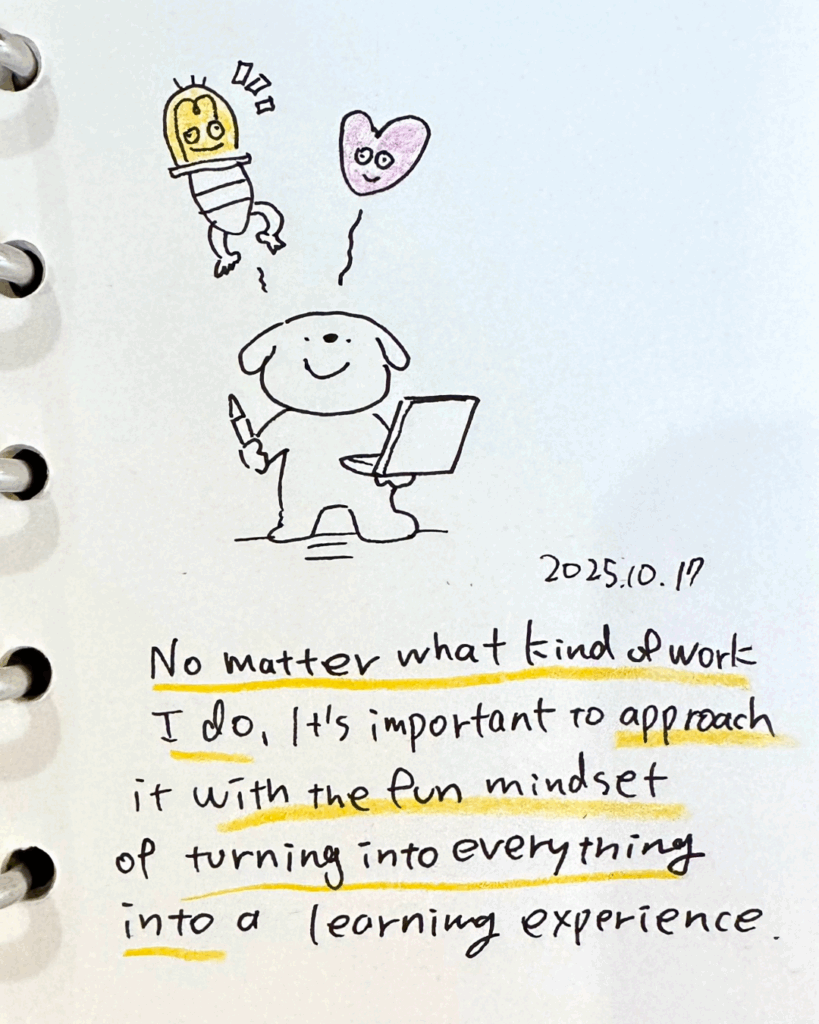 2025.10.17
No matter what kind of work
I do, It's important to approach
it with the fun mindset
of turning into everything
into a learning experience.